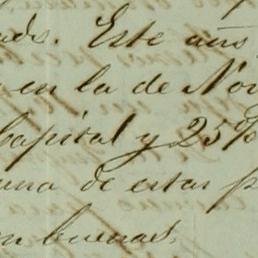 Este año
en la de No
Capital y 25%
una de estas p
buenas.